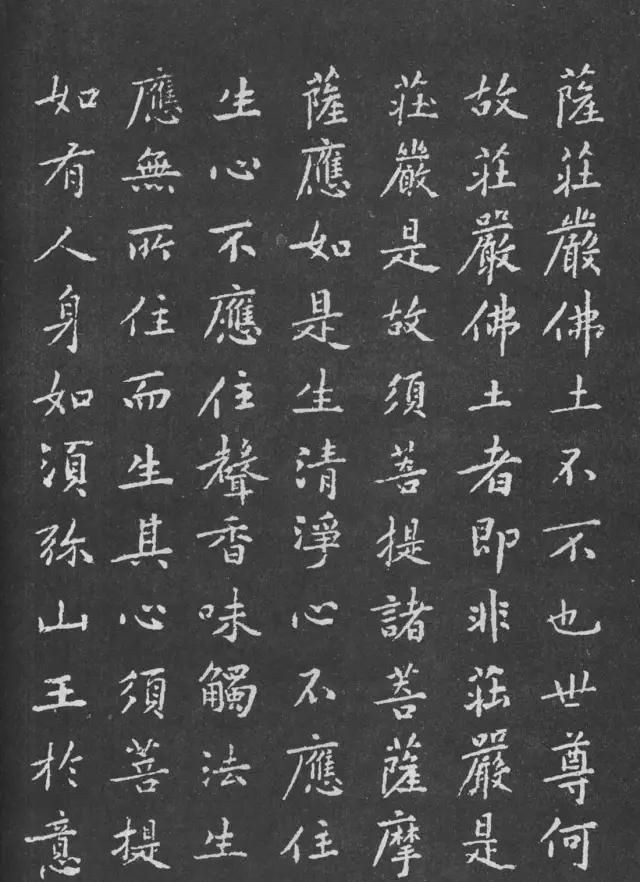 薩莊嚴佛土不不也世尊何
故莊嚴佛土者即非莊嚴是
莊嚴是故須菩提諸菩薩摩
薩應如是生清淨心不應住
生心不應住聲香味觸法生
應無所住而生其心須菩提
如有人身如須弥山王於意